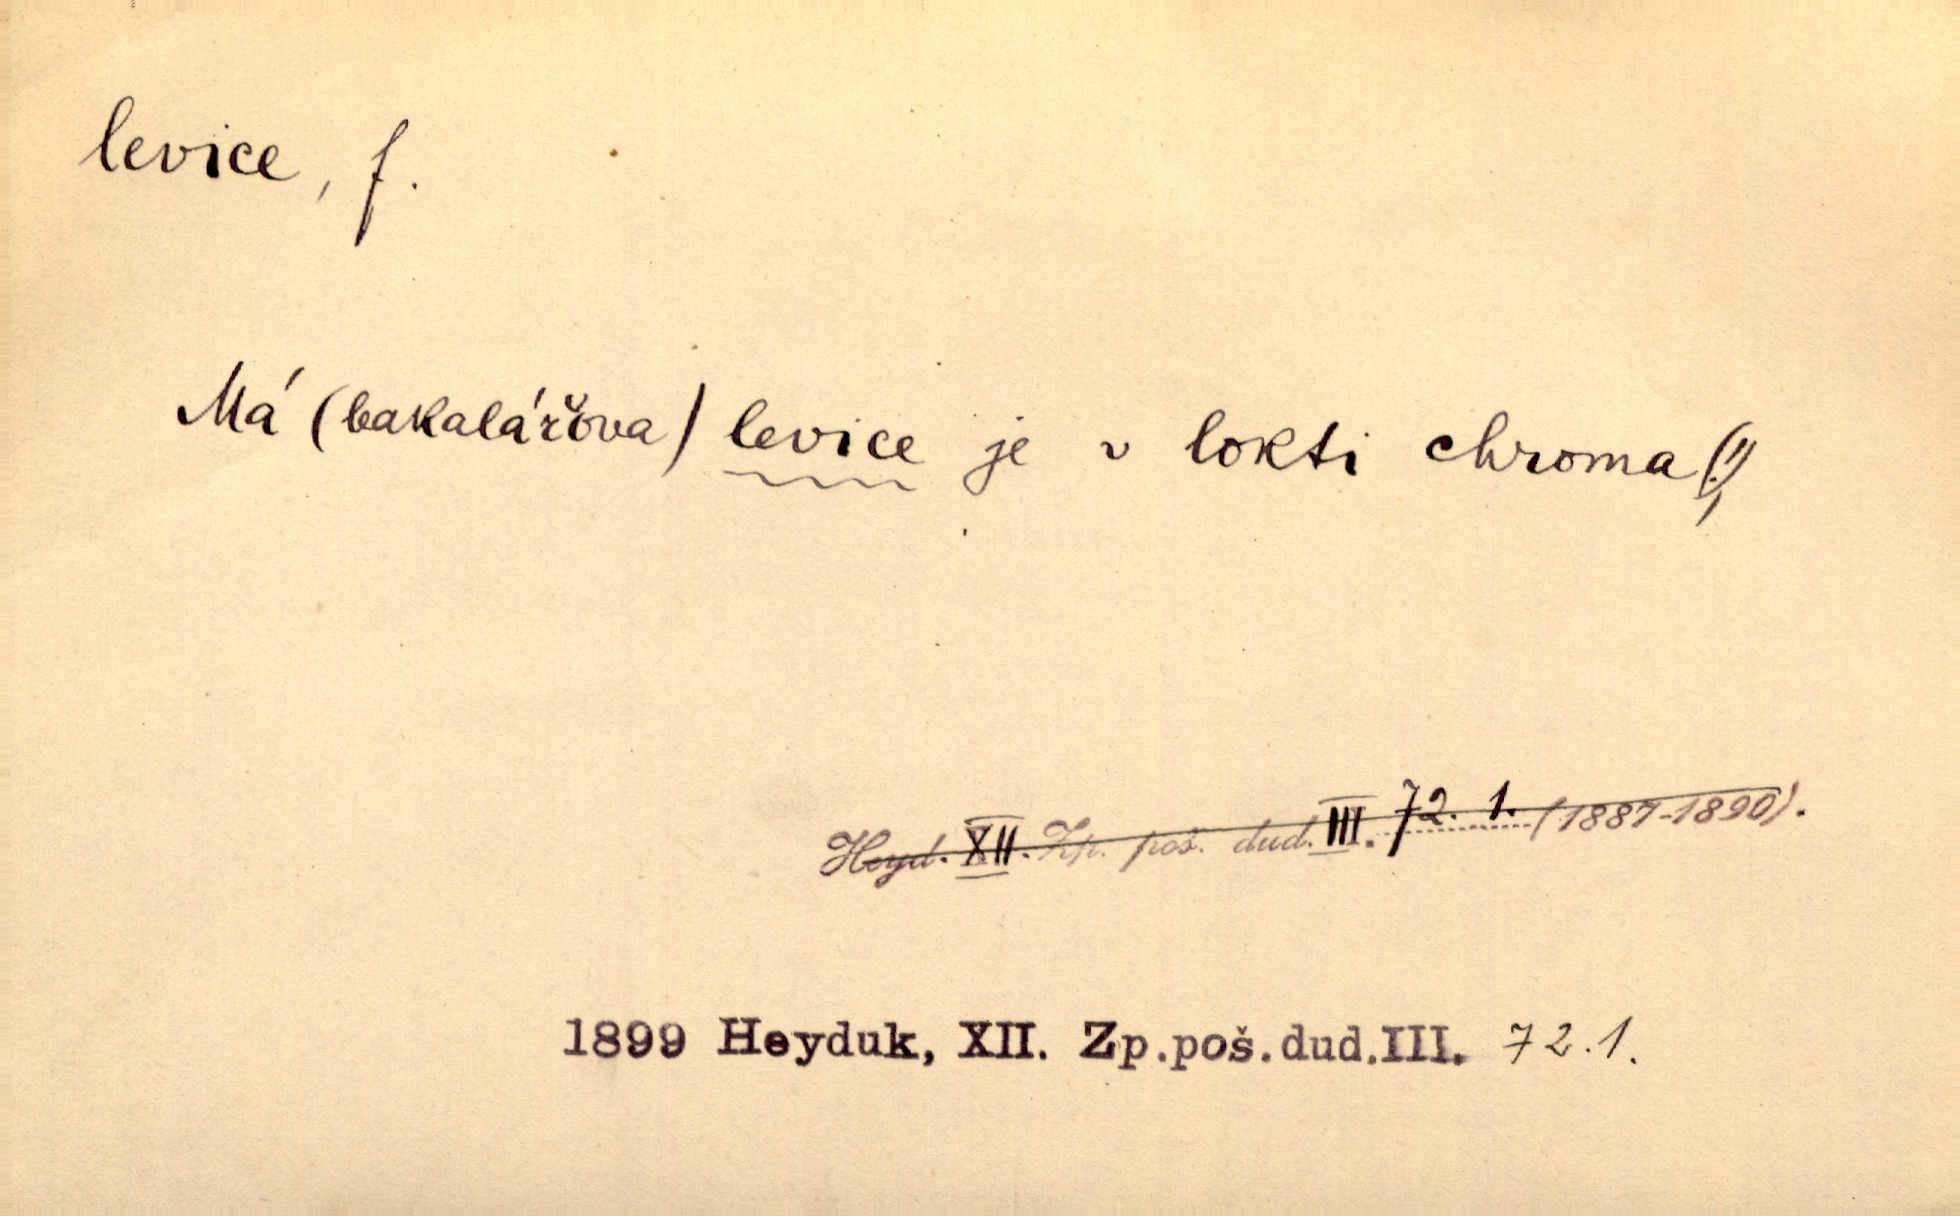 levice, f.
Má (bakalářova) levice je v lokti chroma(!),
Heyd. XII. Zp. poš. dud. III. 72. 1. (1887-1890).
1899 Heyduk, XII. Zp.poš.dud.III. 72.1.